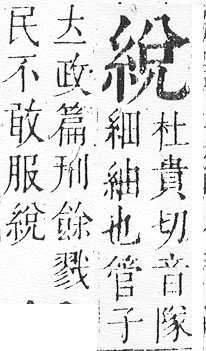 綐
杜貴切音隊
細紬也管子
立政篇刑餘戮
民不敢服綐